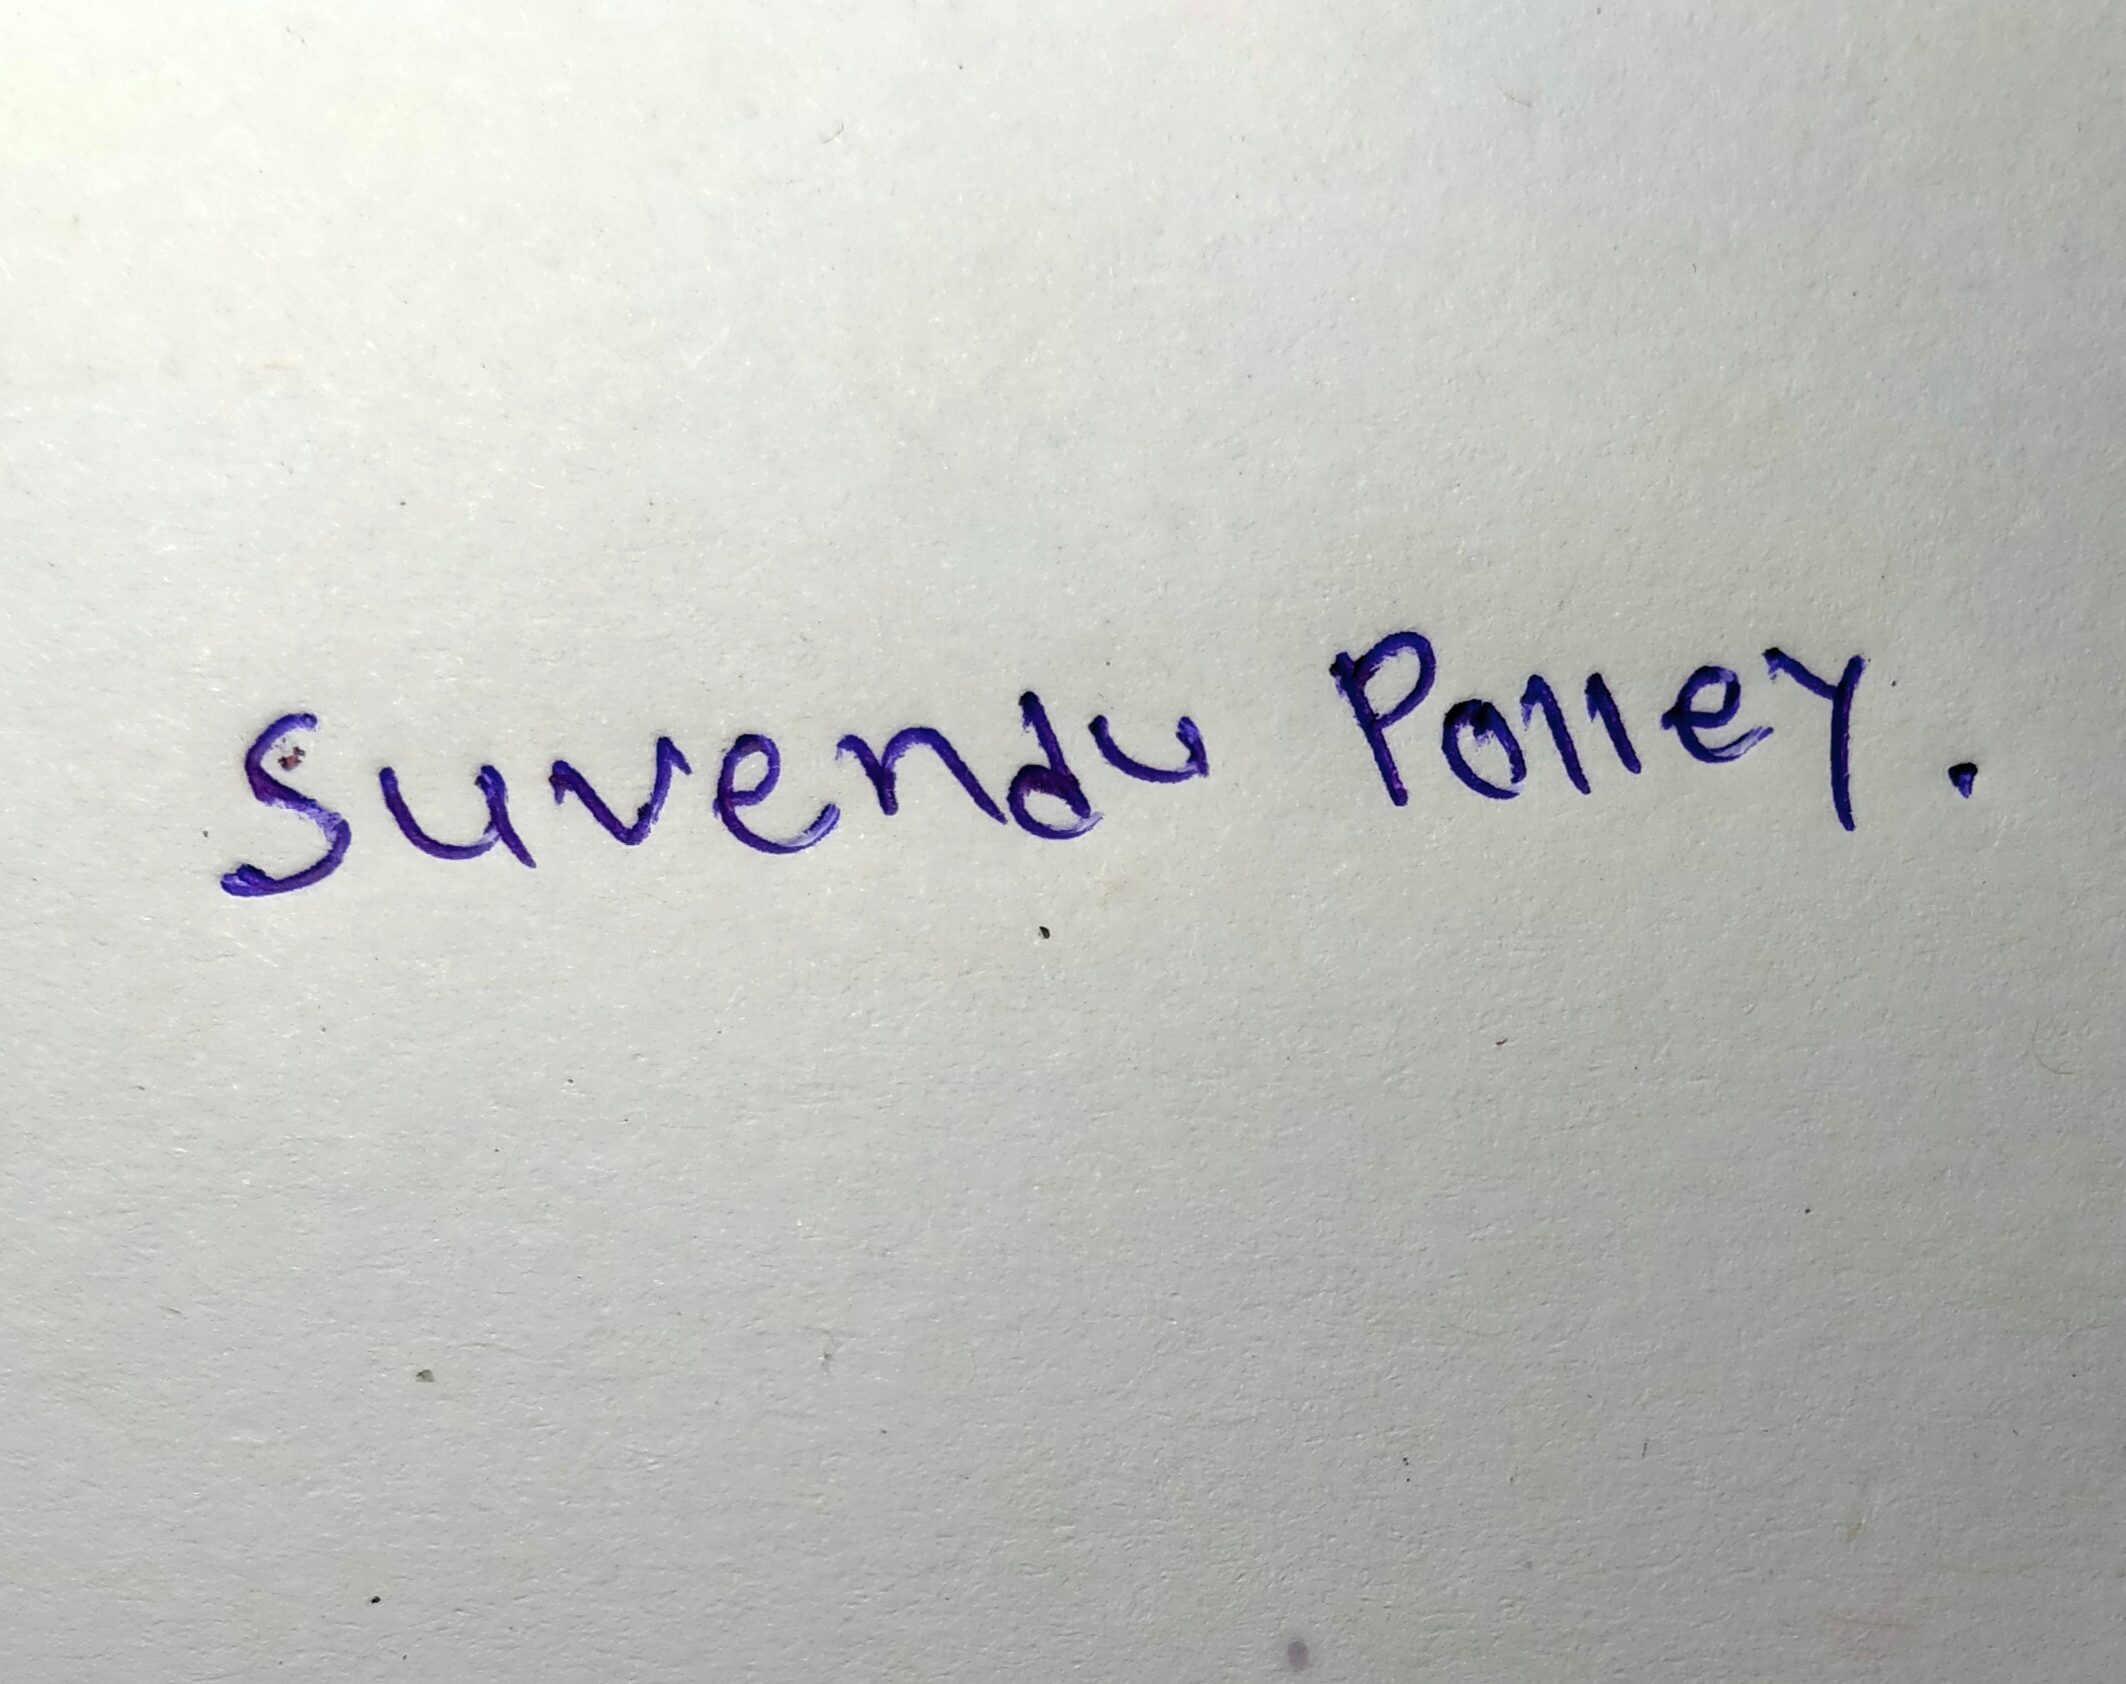 Suvendu Polley.